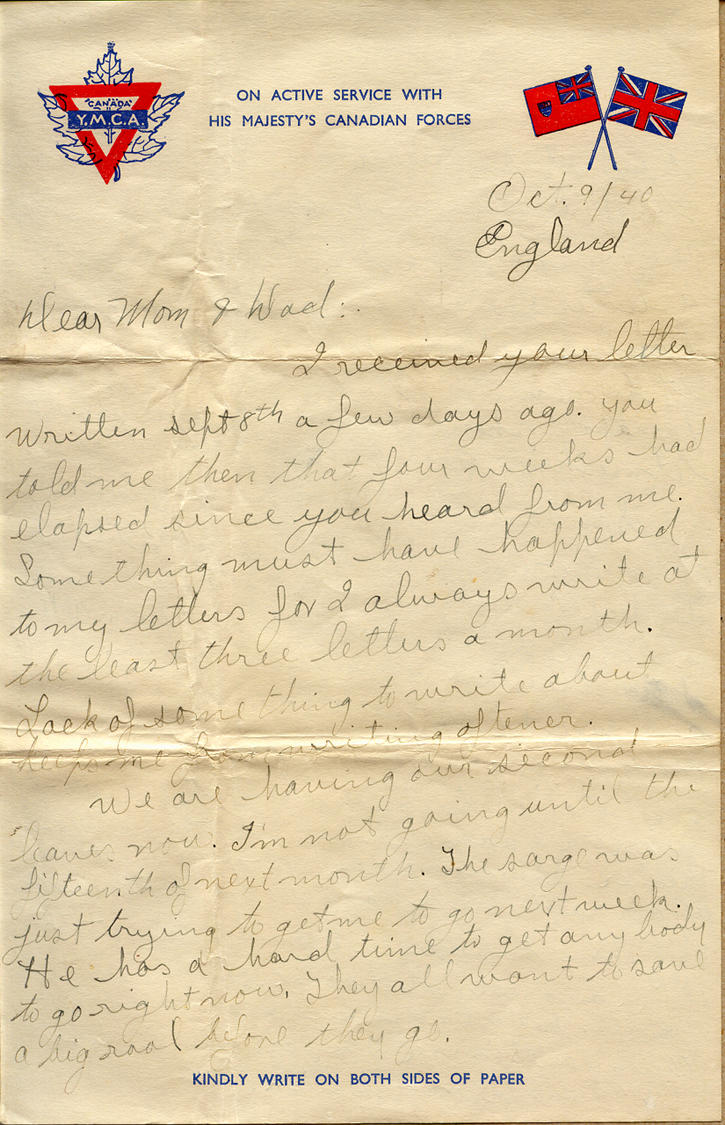 CANADA
Y.M.C.A.
ON ACTIVE SERVICE WITH
HIS MAJESTY'S CANADIAN FORCES
Oct. 9/40
England
Dear Mom & Dad:
I received your letter
written sept 8th a few days ago. you
told me then that four weeks had
elapsed since you heard from me.
Something must have happened
to my letters for I always write at
the least three letters a month.
Lack of something to write about
keeps me from writing oftener.
We are having our second
leaves now. I'm not going until the
fifteenth of next month. The sarge was
just trying to get me to go next week.
He has a hard time to get any body
to go right now. They all want to save
a big roal before they go.
KINDLY WRITE ON BOTH SIDES OF PAPER